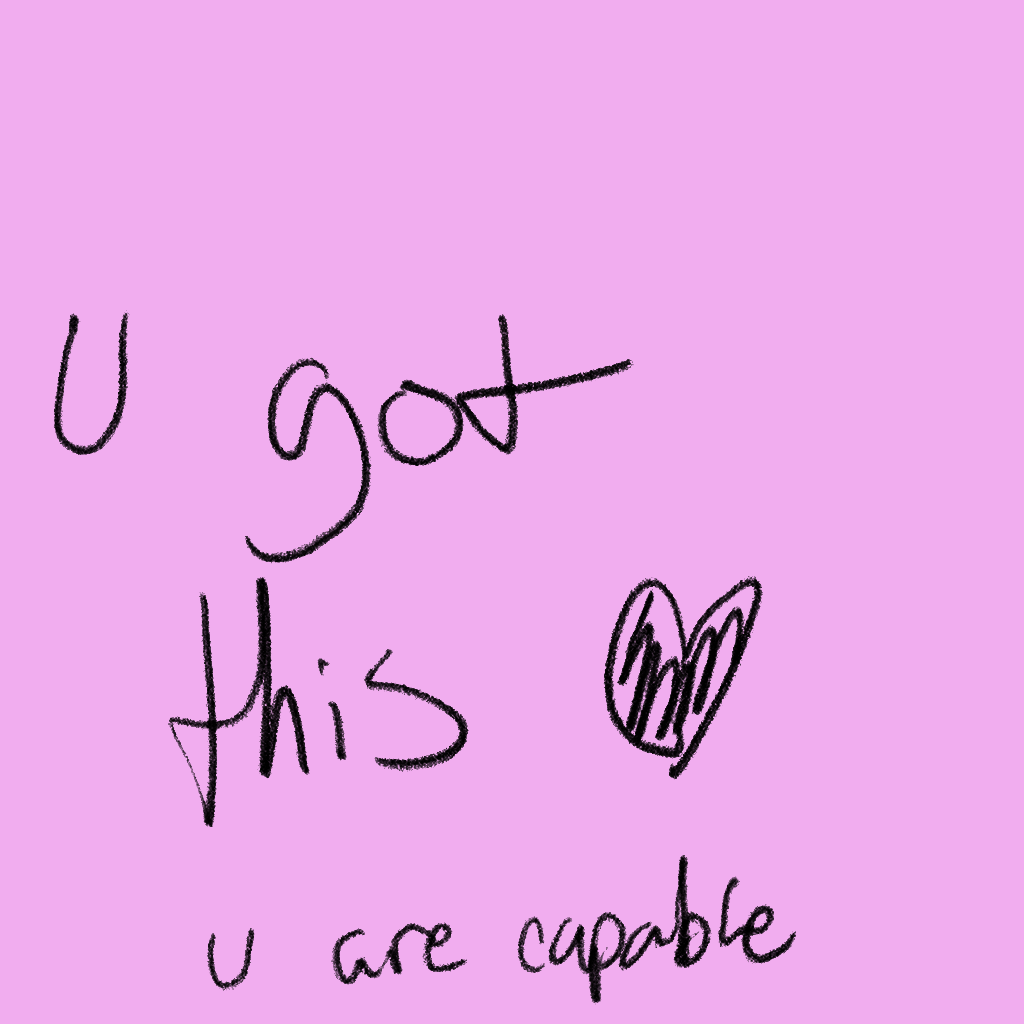 U got
this
u are capable